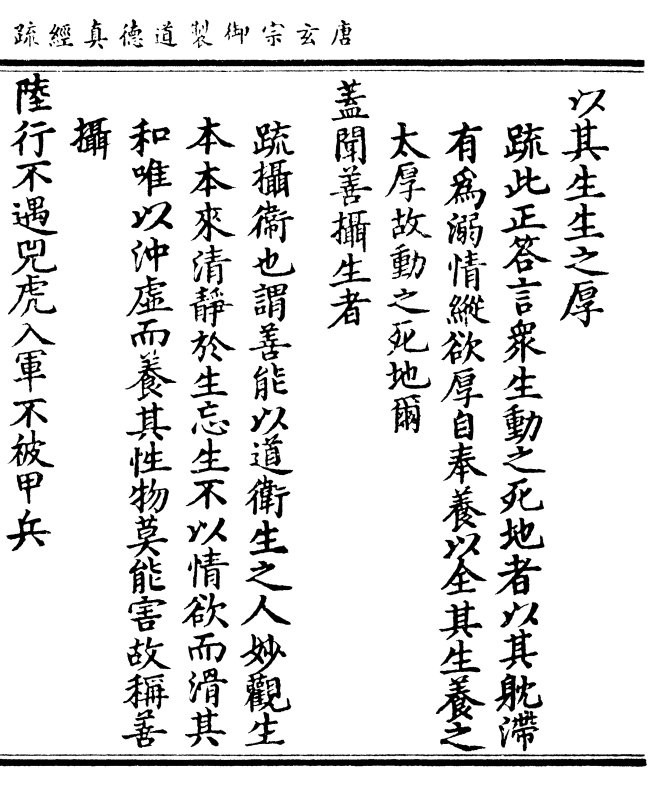 唐玄宗御製道德真經疏
以其生生之厚
疏此正答言衆生動之死地者以其躭滯
有爲溺情縱欲厚自奉養以全其生養之
太厚故動之死地爾
蓋聞善攝生者
疏攝衞也謂善能以道衛生之人妙觀生
本本來清靜於生忘生不以情欲而滑其
和唯以沖虛而養其性物莫能害故稱善
攝
陸行不遇兕虎入軍不被甲兵